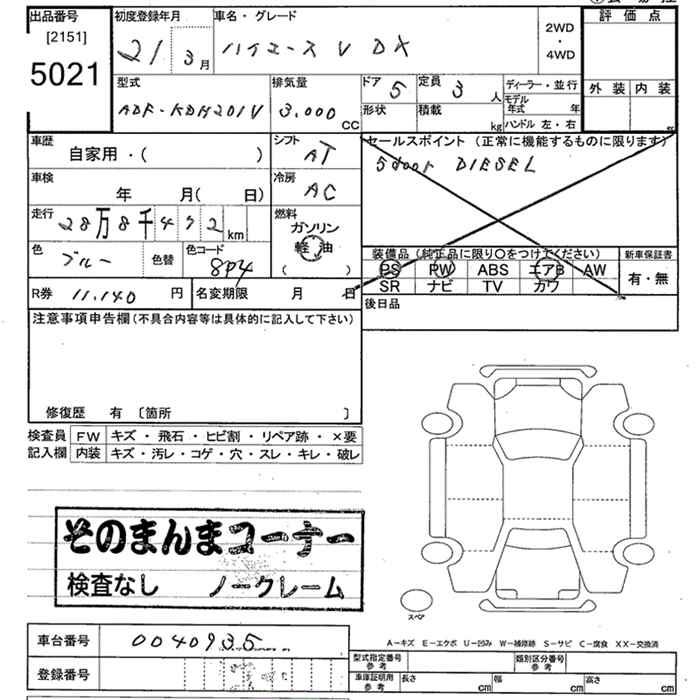 出品番号 初度登録年月 車名・グレード 2WD・4WD 評価点
[2151]
5021 21 3月 ハイエースV DX
型式 排気量 ドア 5 定員 3人 ディーラー・並行 外装 内装
ADF-KDH201V 3.000CC 形状 積載 kg モデル年式 年
ハンドル 左・右
車歴 自家用・( ) シフト AT セールスポイント(正常に機能するものに限ります)
5door DIESEL
車検 年 月( 日) 冷房 AC
走行 28万8千492km 燃料 ガソリン
軽油
( )
色 ブルー 色替 色コード 8P4 装備品(純正品に限り○をつけてください) 新車保証書
PS PW ABS エアB AW 有・無
SR ナビ TV カワ
R券 11.140円 名変期限 月 日 後日品
注意事項申告欄(不具合内容等は具体的に記入して下さい)
修復歴 有 〔箇所 〕
検査員 FW キズ・飛石・ヒビ割・リペア跡・×要
記入欄 内装 キズ・汚レ・コゲ・穴・スレ・キレ・破レ
そのまんまコーナー
検査なし ノークレーム
スペア
車台番号 0040935 A-キズ E-エクボ U-凹み W-補修跡 S-サビ C-腐食 XX-交換済
登録番号 型式指定番号 参考 類別区分番号 参考
車庫証明用 参考 長さ cm 幅 cm 高さ cm